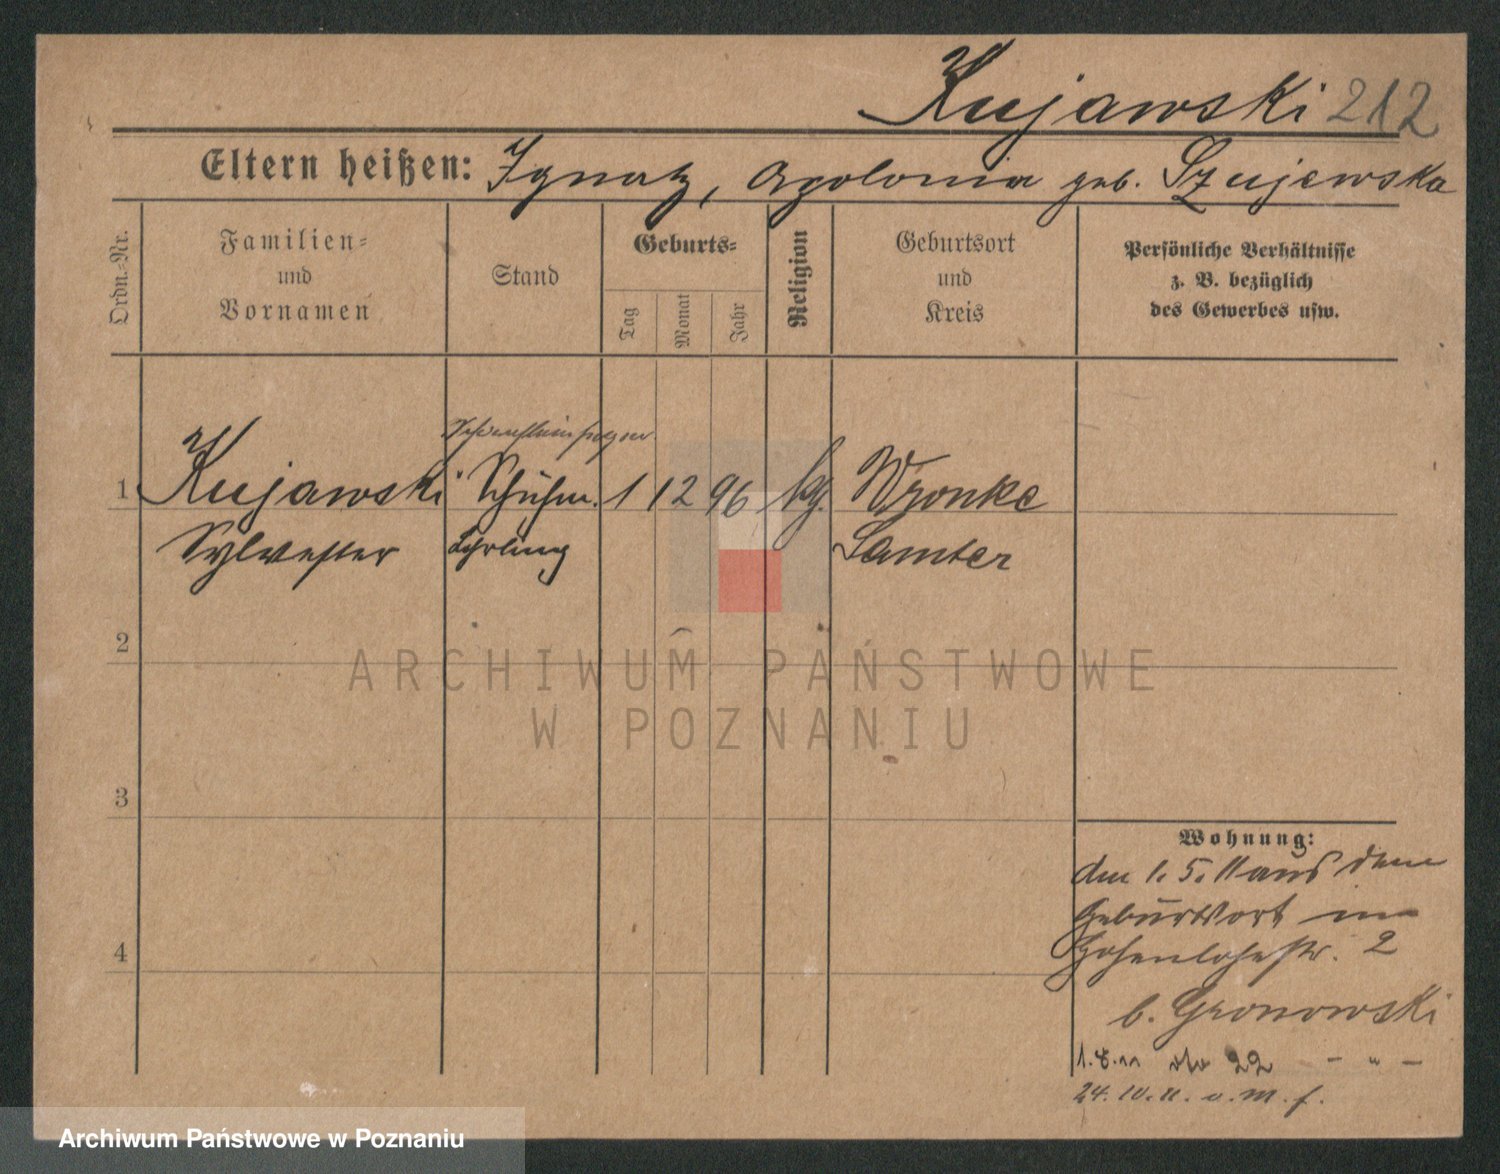 Kujawski 212
Eltern heißen: Ignatz, Apolonia geb. Szujewska
Ordn.-Nr.
Familien-
und
Vornamen
Stand
Geburts-
Tag
Monat
Jahr
Religion
Geburtsort
und
Kreis
Persönliche Verhältnisse
z. B. bezüglich
des Gewerbes usw.
1 Kujawski Schuhm. 1 12 96 kg. Wronke
Sylvester Lehrling Samter
2
3
4
Wohnung:
den 1. 5. 11 aus dem
Geburtsort in
Hohenlohestr. 2
b. Gronowski
1.8.11 22 - " -
24. 10. 11. v. M. f.
ARCHIWUM PAŃSTWOWE
W POZNANIU
Archiwum Państwowe w Poznaniu